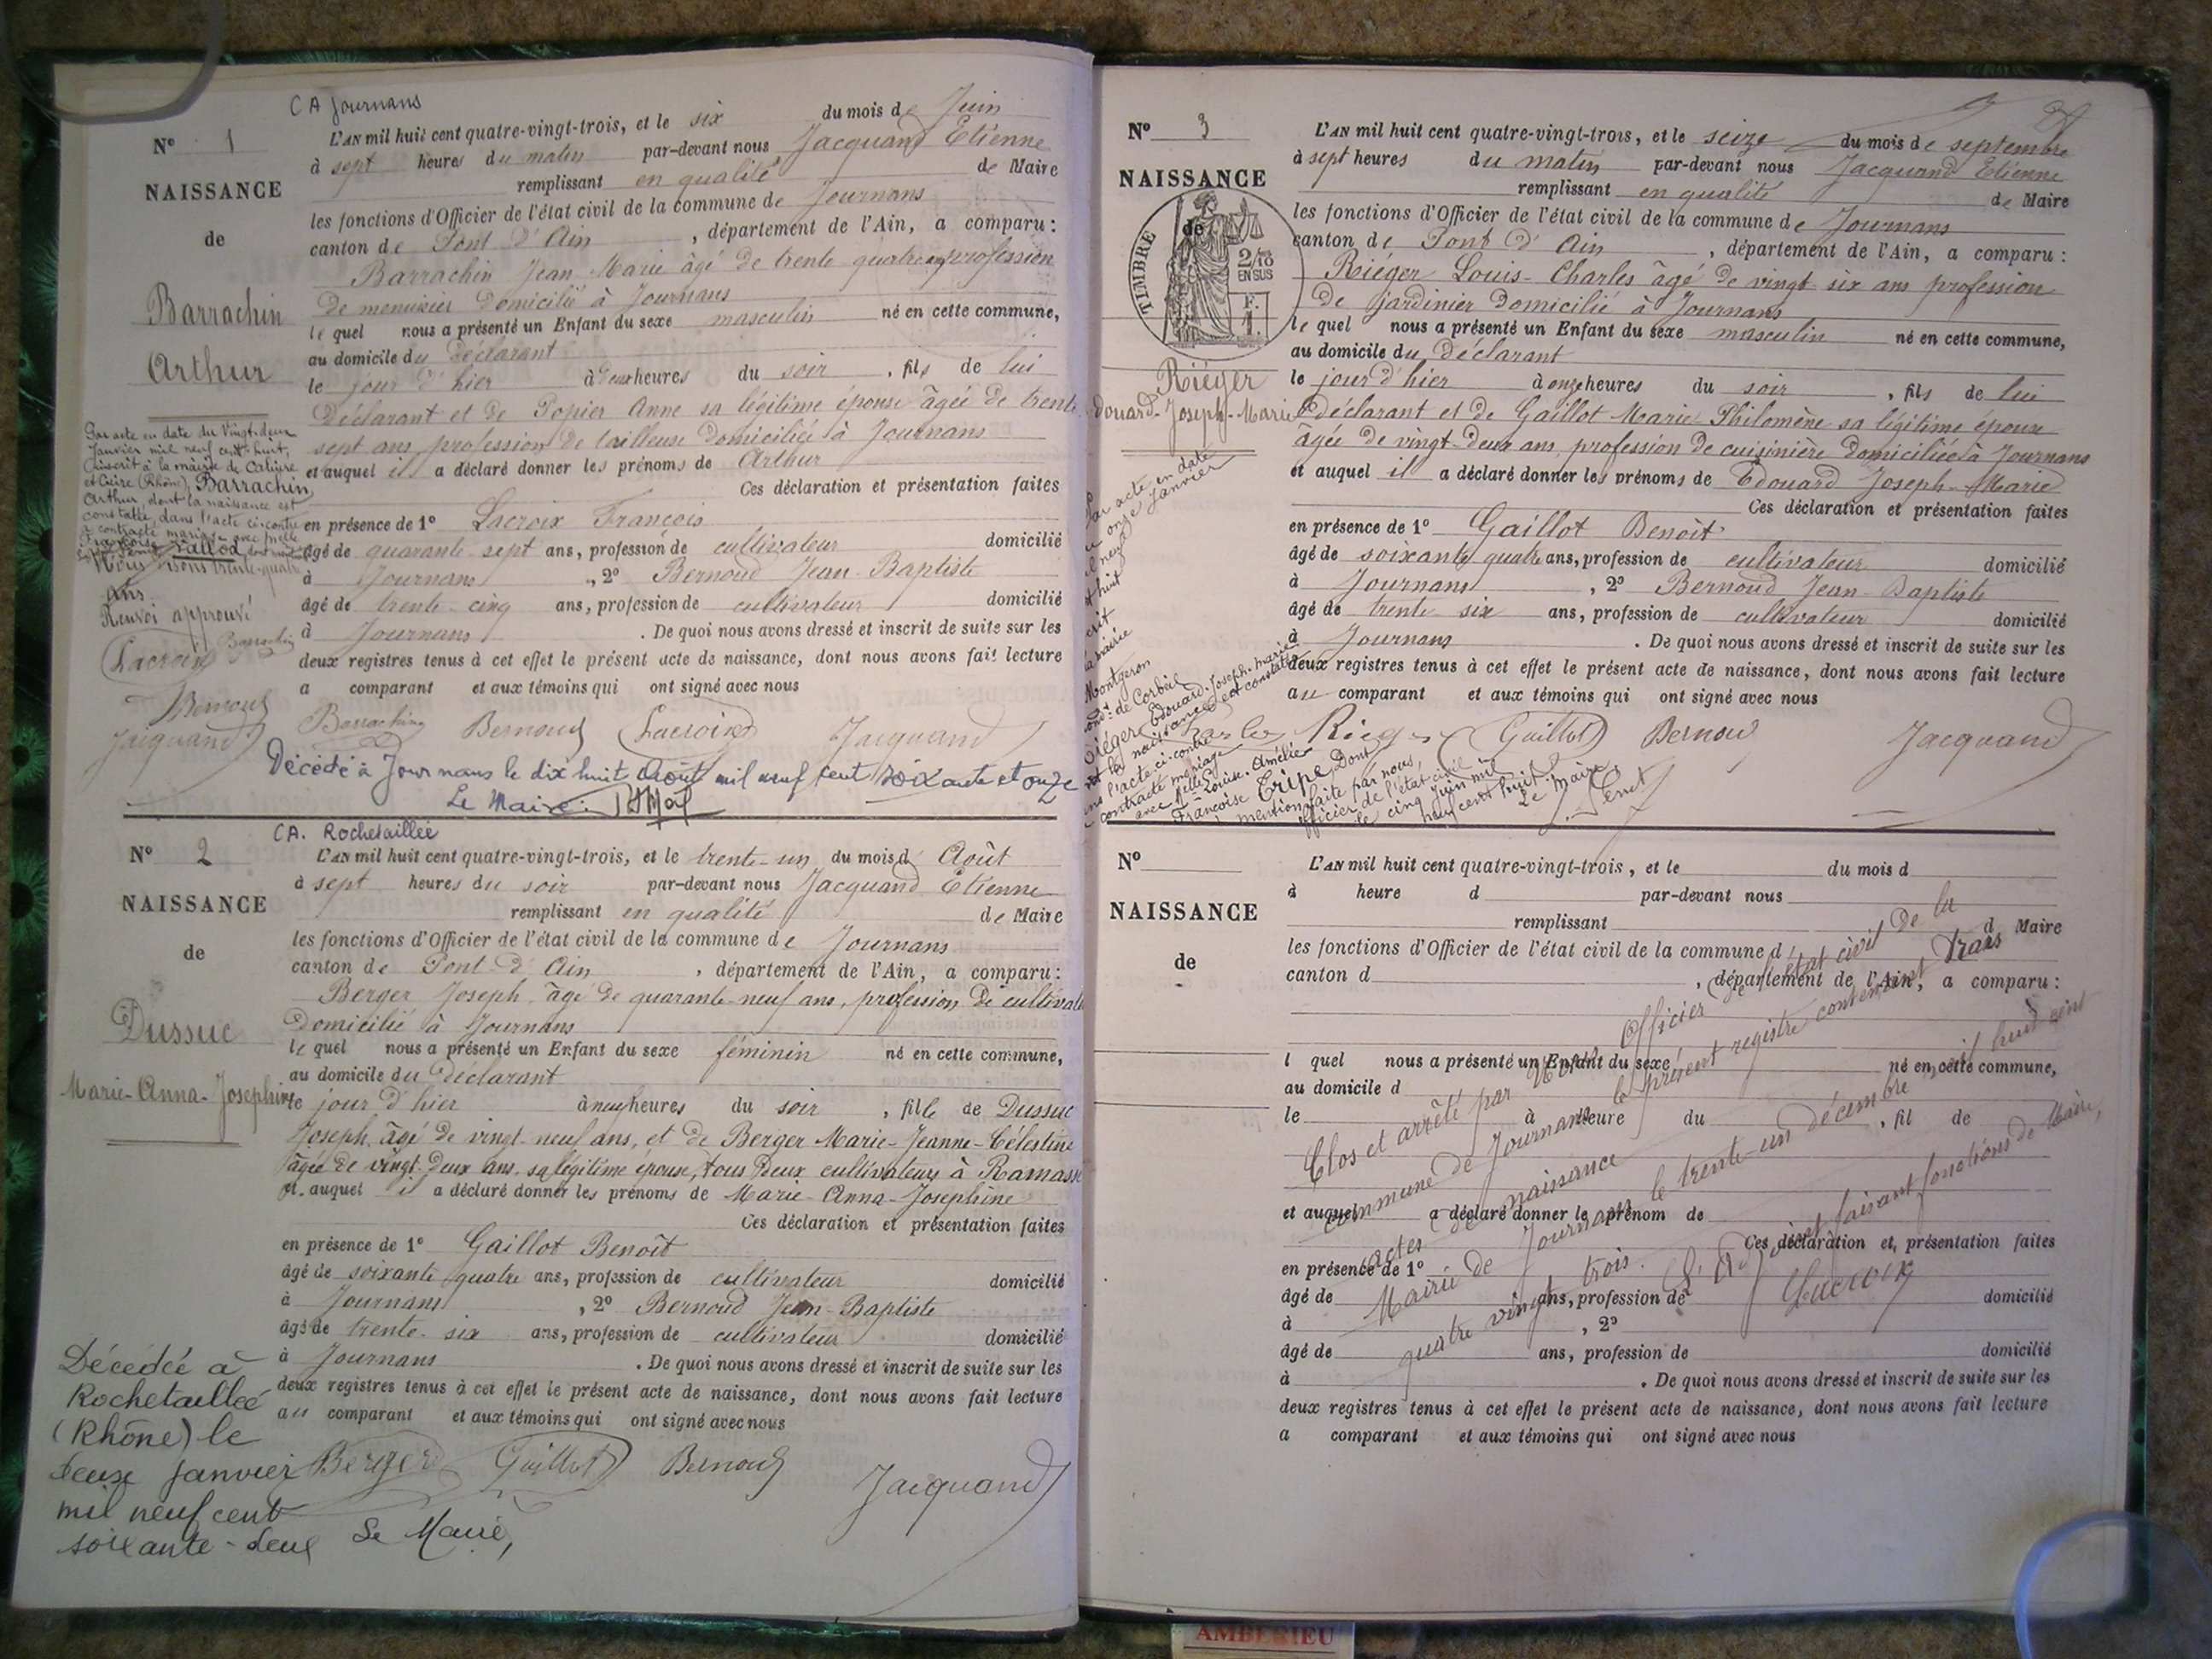 CA Journans
Nº 1
NAISSANCE
de
Barrachin
Arthur
L'AN mil huit cent quatre-vingt-trois, et le six du mois de Juin
à sept heures du matin par-devant nous Jacquand Etienne
remplissant en qualité de Maire
les fonctions d'Officier de l'état civil de la commune de Journans
canton de Pont d'Ain, département de l'Ain, a comparu:
Barrachin Jean Marie âgé de trente quatre ans profession
de menuisier domicilié à Journans
lequel nous a présenté un Enfant du sexe masculin né en cette commune,
au domicile du déclarant
le jour d'hier à deux heures du soir, fils de lui
déclarant et de Popier Anne sa légitime épouse âgée de trente
sept ans, profession de tailleuse domiciliée à Journans
et auquel il a déclaré donner les prénoms de Arthur
Ces déclaration et présentation faites
en présence de 1º Lacroix François
âgé de quarante sept ans, profession de cultivateur domicilié
à Journans, 2º Bernoud Jean-Baptiste
âgé de trente-cinq ans, profession de cultivateur domicilié
à Journans. De quoi nous avons dressé et inscrit de suite sur les
deux registres tenus à cet effet le présent acte de naissance, dont nous avons fait lecture
a comparant et aux témoins qui ont signé avec nous
Par acte en date du Vingt-deux
Janvier mil neuf cent-huit,
inscrit à la mairie de Caluire
et Cuire (Rhône), Barrachin
Arthur, dont la naissance est
constatée, dans l'acte ci-contre
a contracté mariage avec Melle
Françoise
Nous disons trente-quatre
ans.
Renvoi approuvé
Lacroix Barrachin
Bernoud
Jacquand
Barrachin Bernoud Lacroix Jacquand
Décédé à Journans le dix huit Août mil neuf cent soixante et onze
Le Maire:
CA. Rochetaillée
Nº 2
NAISSANCE
de
Dussuc
Marie-Anna-Josephine
L'AN mil huit cent quatre-vingt-trois, et le trente-un du mois d Août
à sept heures du soir par-devant nous Jacquand Etienne
remplissant en qualité de Maire
les fonctions d'Officier de l'état civil de la commune de Journans
canton de Pont d'Ain, département de l'Ain, a comparu:
Berger Joseph, âgé de quarante-neuf ans, profession de cultivat
domicilié à Journans
lequel nous a présenté un Enfant du sexe féminin né en cette commune,
au domicile du déclarant
le jour d'hier à neuf heures du soir, fille de Dussuc
Joseph, âgé de vingt-neuf ans, et de Berger Marie-Jeanne-Célestine
âgée de vingt-deux ans, sa légitime épouse, tous deux cultivateurs à Ramasse
et auquel il a déclaré donner les prénoms de Marie-Anna-Josephine
Ces déclaration et présentation faites
en présence de 1º Gaillot Benoît
âgé de soixante quatre ans, profession de cultivateur domicilié
à Journans, 2º Bernoud Jean-Baptiste
âgé de trente-six ans, profession de cultivateur domicilié
à Journans. De quoi nous avons dressé et inscrit de suite sur les
deux registres tenus à cet effet le présent acte de naissance, dont nous avons fait lecture
au comparant et aux témoins qui ont signé avec nous
Berger Gaillot Bernoud Jacquand
Décédée à
Rochetaillée
(Rhône) le
janvier
mil neuf cent
soixante-deux Le Maire,
Nº 3
NAISSANCE
de
TIMBRE
2/10
EN SUS
F.
1.
Riéger
douard-Joseph-Marie
L'AN mil huit cent quatre-vingt-trois, et le seize du mois de septembre
à sept heures du matin par-devant nous Jacquand Etienne
remplissant en qualité de Maire
les fonctions d'Officier de l'état civil de la commune de Journans
canton de Pont d'Ain, département de l'Ain, a comparu:
Riéger Louis-Charles âgé de vingt-six ans profession
de jardinier domicilié à Journans
lequel nous a présenté un Enfant du sexe masculin né en cette commune,
au domicile du déclarant
le jour d'hier à onze heures du soir, fils de lui
déclarant et de Gaillot Marie-Philomène sa légitime épouse
âgée de vingt-deux ans, profession de cuisinière domiciliée à Journans
et auquel il a déclaré donner les prénoms de Edouard Joseph-Marie
Ces déclaration et présentation faites
en présence de 1º Gaillot Benoît
âgé de soixante quatre ans, profession de cultivateur domicilié
à Journans, 2º Bernoud Jean-Baptiste
âgé de trente six ans, profession de cultivateur domicilié
à Journans. De quoi nous avons dressé et inscrit de suite sur les
deux registres tenus à cet effet le présent acte de naissance, dont nous avons fait lecture
au comparant et aux témoins qui ont signé avec nous
Par acte en date
onze Janvier
neuf
huit
mairie
Montgeron
de Corbeil
Riéger Edouard-Joseph-Marie
la naissance est constatée
l'acte ci-contre
contracté mariage
avec Melle Louise-Amélie
Françoise Tripe, Dont
mention faite par nous,
officier de l'état civil
le cinq Juin mil
neuf cent huit
Le Maire,
Charles Rieger Gaillot Bernoud Jacquand
Nº
NAISSANCE
de
L'AN mil huit cent quatre-vingt-trois, et le du mois d
à heure d par-devant nous
remplissant d Maire
les fonctions d'Officier de l'état civil de la commune d
canton d, département de l'Ain, a comparu:
l quel nous a présenté un Enfant du sexe né en cette commune,
au domicile d
le à heure du, fil de
et auquel a déclaré donner le prénom de
Ces déclaration et présentation faites
en présence de 1º
âgé de ans, profession de domicilié
à, 2º
âgé de ans, profession de domicilié
à. De quoi nous avons dressé et inscrit de suite sur les
deux registres tenus à cet effet le présent acte de naissance, dont nous avons fait lecture
a comparant et aux témoins qui ont signé avec nous
Clos et arrêté par Nous Officier de l'état civil de la
commune de Journans le présent registre contenant trois
actes de naissance
Mairie de Journans le trente-un décembre mil huit cent
quatre vingt trois. faisant fonctions de Maire,
Lacroix
AMBERIEU